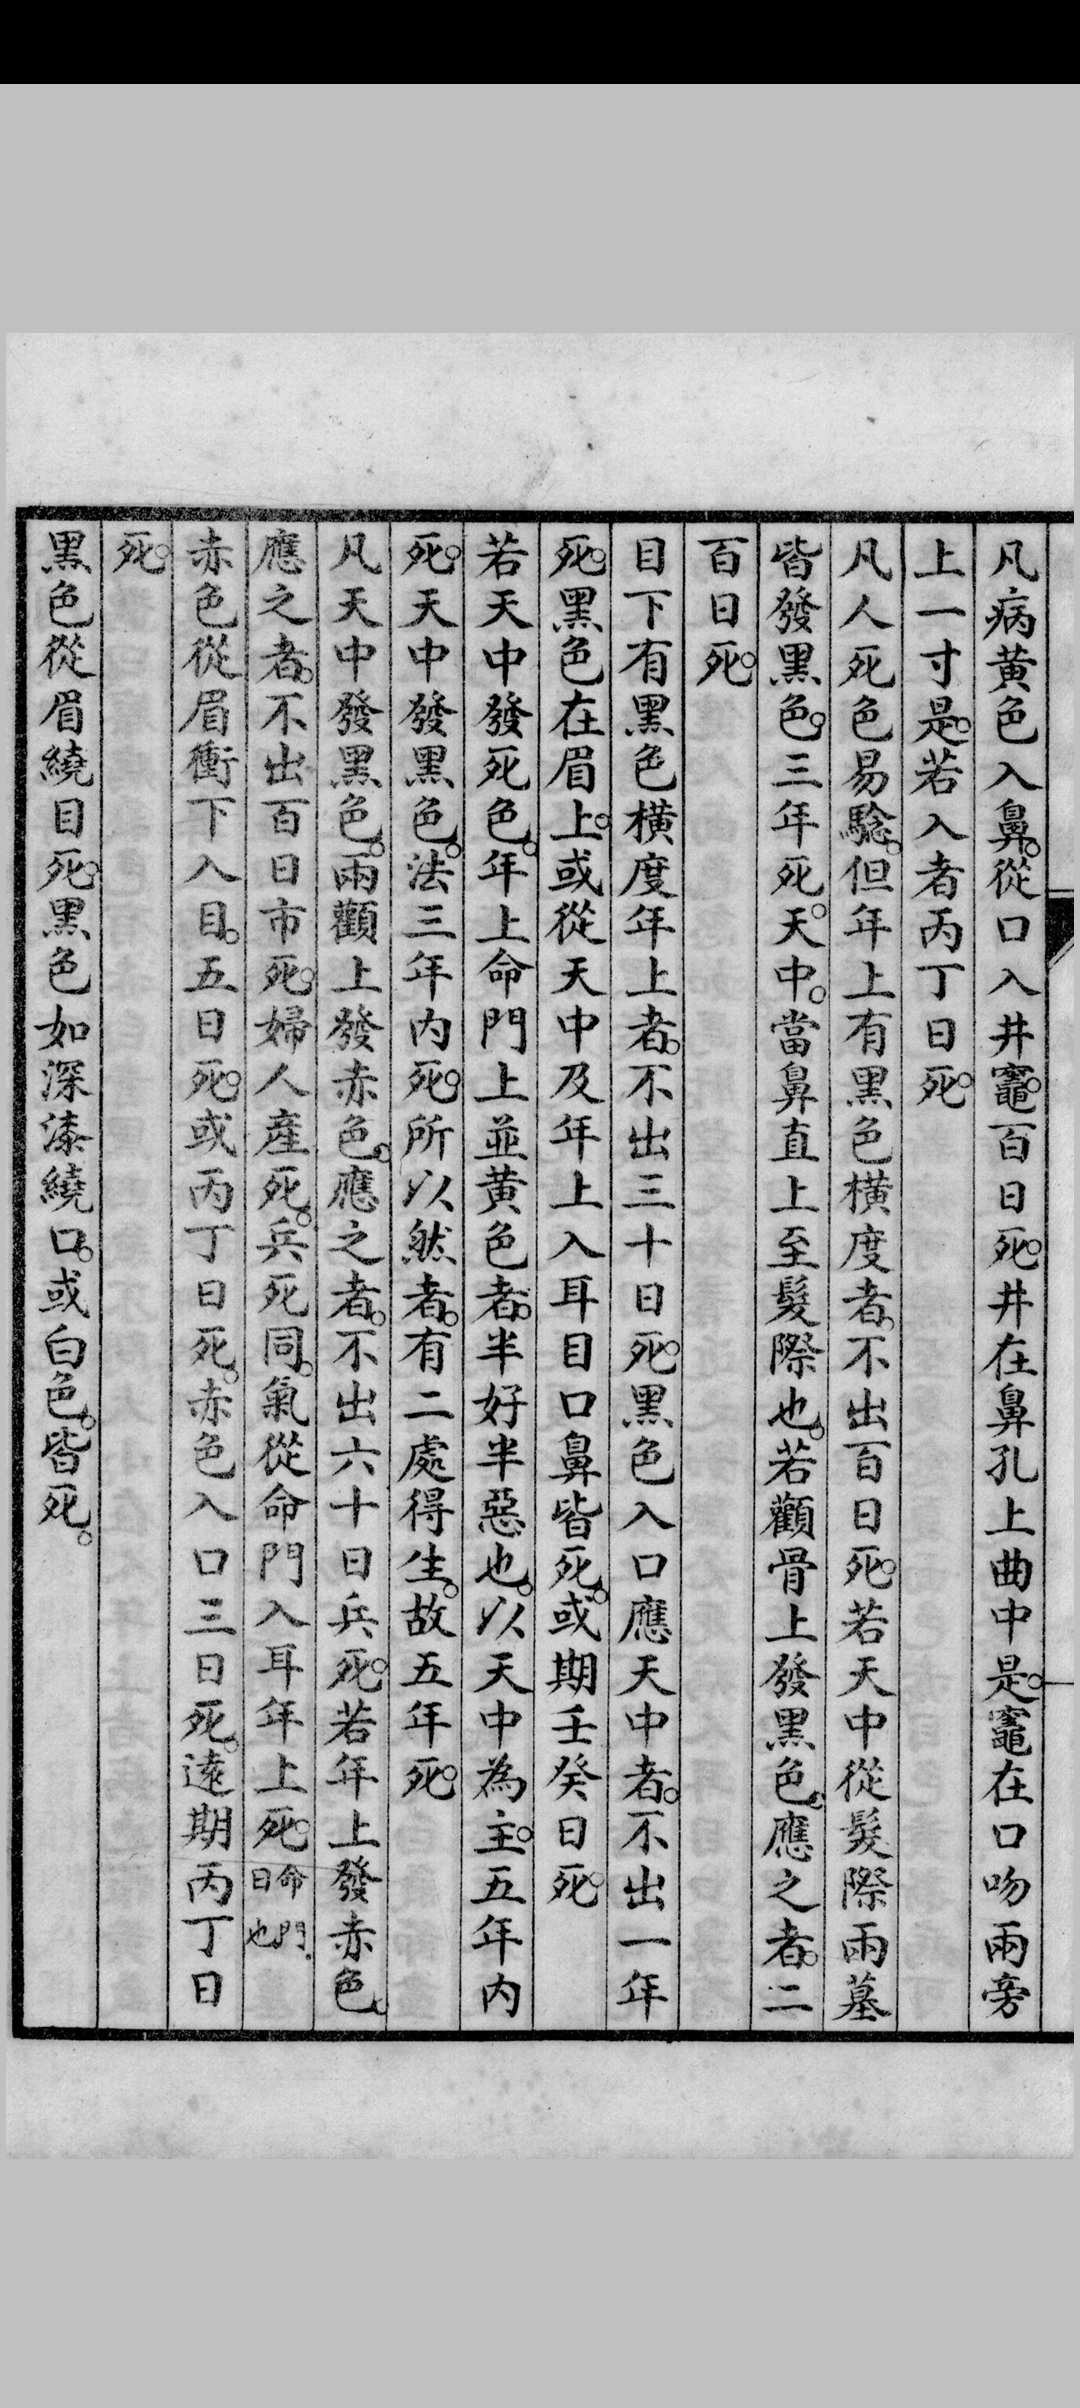 凡病黄色入鼻。從口入井竈。百日死。井在鼻孔上曲中是。竈在口吻兩旁
上一寸是。若入者丙丁日死。
凡人死色易驗。但年上有黑色橫度者。不出百日死。若天中從髮際兩墓
皆發黑色。三年死。天中。當鼻直上至髮際也。若顴骨上發黑色。應之者。二
百日死。
目下有黑色橫度年上者。不出三十日死。黑色入口應天中者。不出一年
死。黑色在眉上。或從天中及年上入耳目口鼻皆死。或期壬癸日死。
若天中發死色。年上命門上並黄色者。半好半惡也。以天中為主。五年內
死。天中發黑色。法三年内死。所以然者。有二處得生。故五年死。
凡天中發黑色。兩顴上發赤色。應之者。不出六十日兵死。若年上發赤色。
應之者。不出百日市死。婦人產死。兵死同。氣從命門入耳年上死。命門。日也
赤色從眉衝下入目。五日死。或丙丁日死。赤色入口三日死。遠期丙丁日
死。
黑色從眉繞目死。黑色如深漆繞口。或白色。皆死。